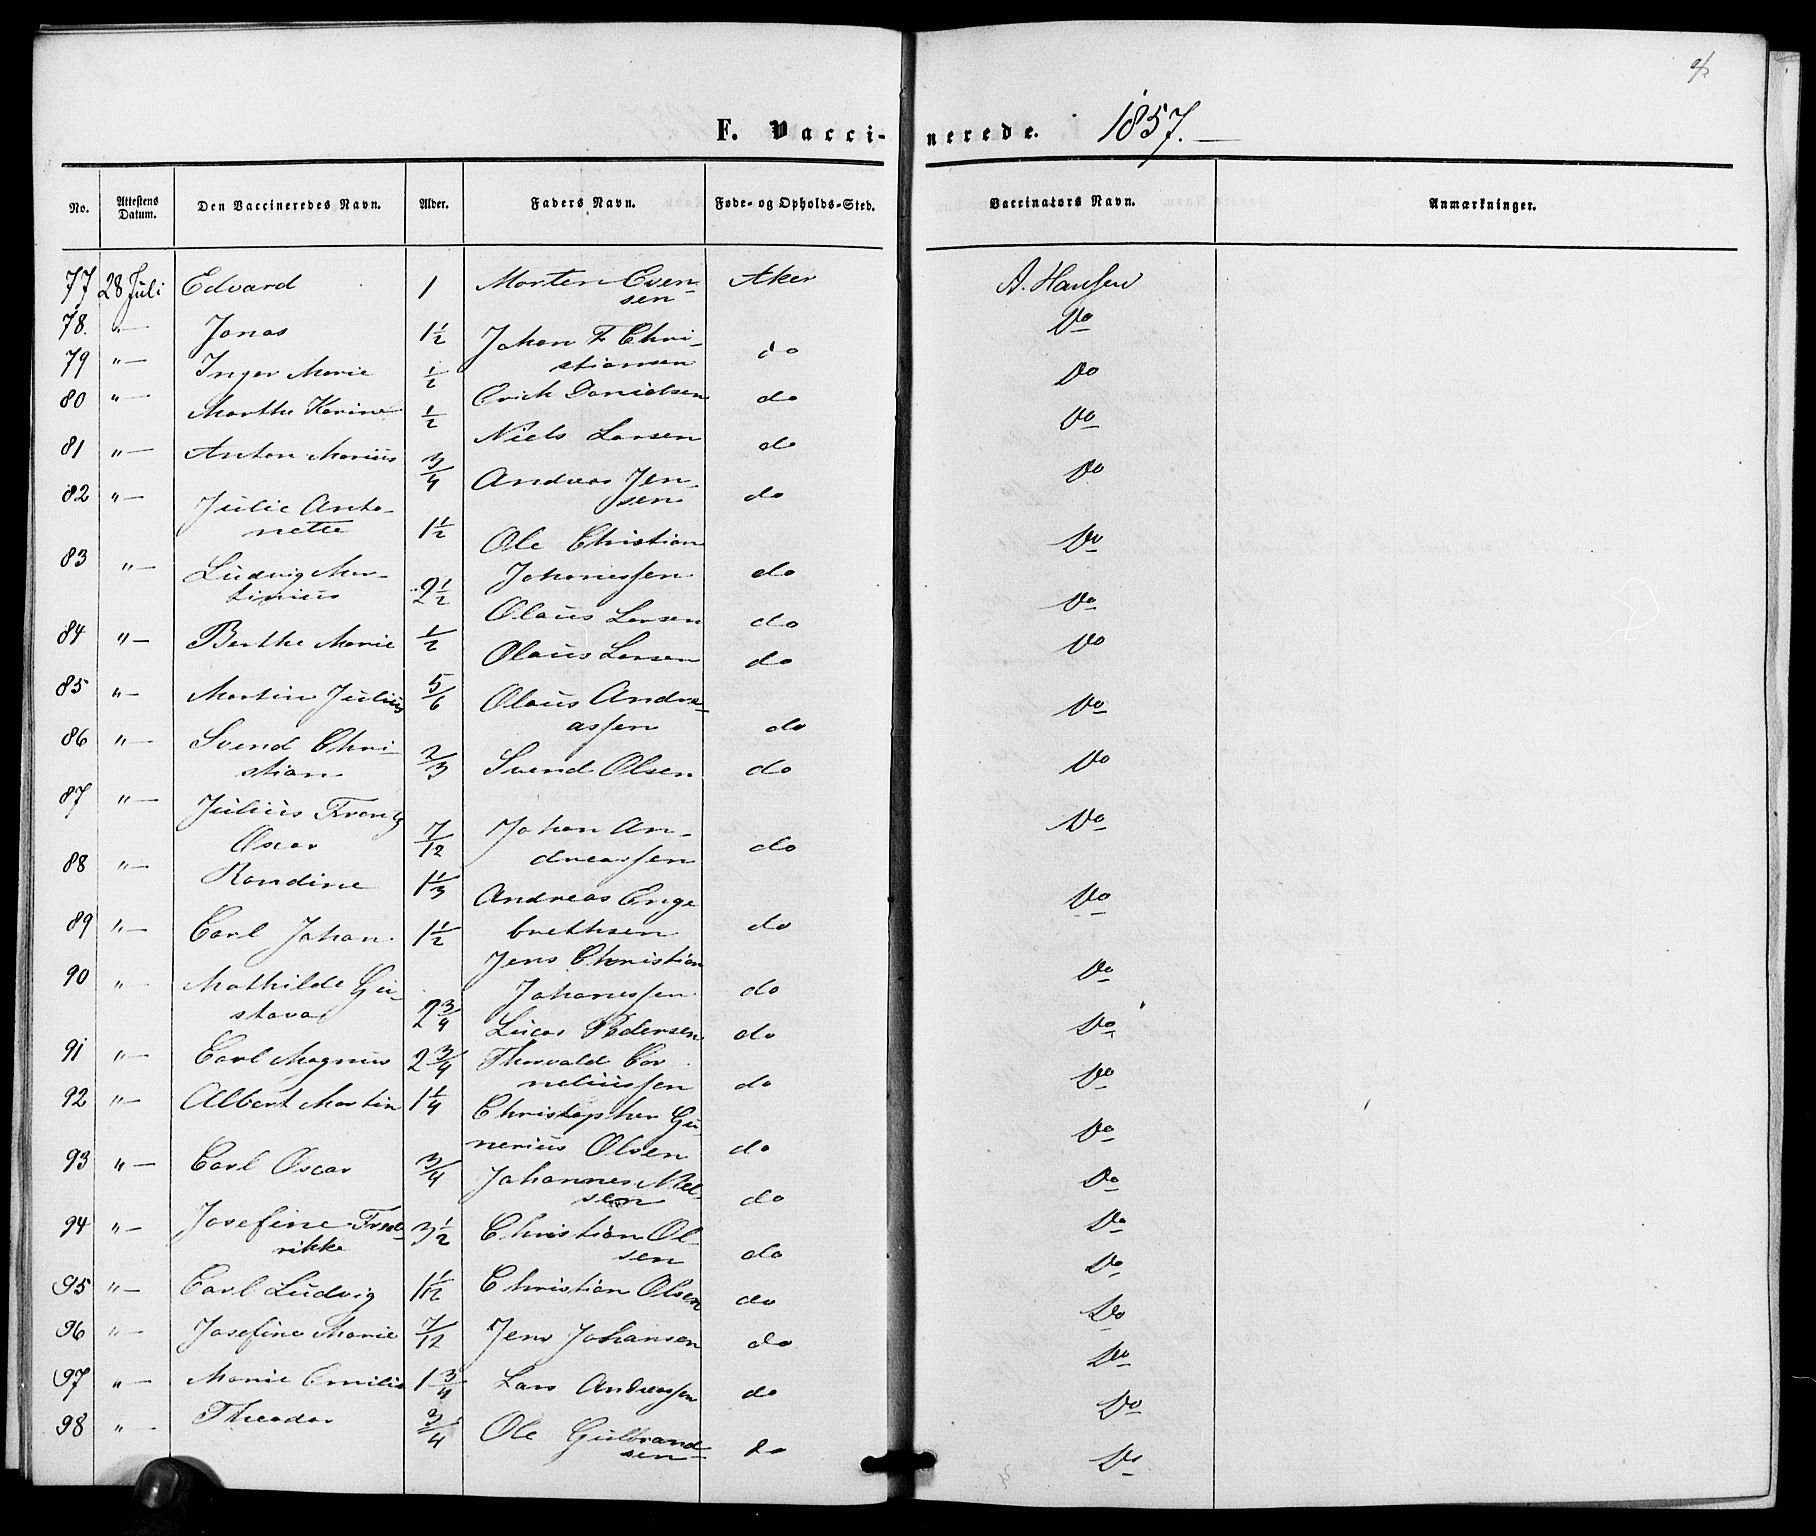 4
F. Vacci- nerede. 1857. —
No. Attestens Datum. Den Vaccineredes Navn. Alder. Faders Navn. Føde- og Opholds-Sted. Vaccinators Navn. Anmærkninger.
77 28 Juli Edvard 1 Morten Even- Aker A. Hansen
sen
78. " — Jonas 1 1/2 Johan F Chri- do Do
stiansen
79 " — Inger Marie 1/2 Erich Danielsen do Do
80 " — Marthe Karine 1/2 Niels Larsen do Do
81 " — Anton Marius 3/4 Andreas Jen- do Do
sen
82 " — Julie Anto- 1 1/2 Ole Christian Do
nette Johannessen do
83 " — Ludvig Mar- 2 1/2 Olaus Larsen do Do
tinius
84 " — Berthe Marie 1/2 Olaus Larsen do Do
85 " — Martin Julius 5/6 Olaus Andre- do Do
assen
86 " — Svend Chri- 2/3 Svend Olsen do Do
stian
87 " — Julius Frantz 7/12 Johan An- do Do
Oscar dreassen
88 " — Randine 1 1/3 Andreas Enge do Do
brethsen
89 " — Carl Johan 1 1/2 Jens Christian Do
Johanessen do
90 " — Mathilde Gu- 2 3/4 Lucas Pedersen do Do
stava
91 " — Carl Magnus 2 3/4 Thorvald Cor do Do
neliussen
92 " — Albert Martin 1 1/4 Christopher Gu- Do
nerius Olsen do
93 " — Carl Oscar 3/4 Johannes Niel- do Do
sen
94 " — Josefine Fred- 3 1/2 Christian Ol- do Do
rikke sen
95 " — Carl Ludvig 1 1/12 Christian Olsen do Do
96 " — Josefine Marie 7/12 Jens Johansen do Do
97 " — Marie Emilie 1 3/4 Lars Andreassen do Do
98 " — Theodor 3/4 Ole Gulbrand- do Do
sen